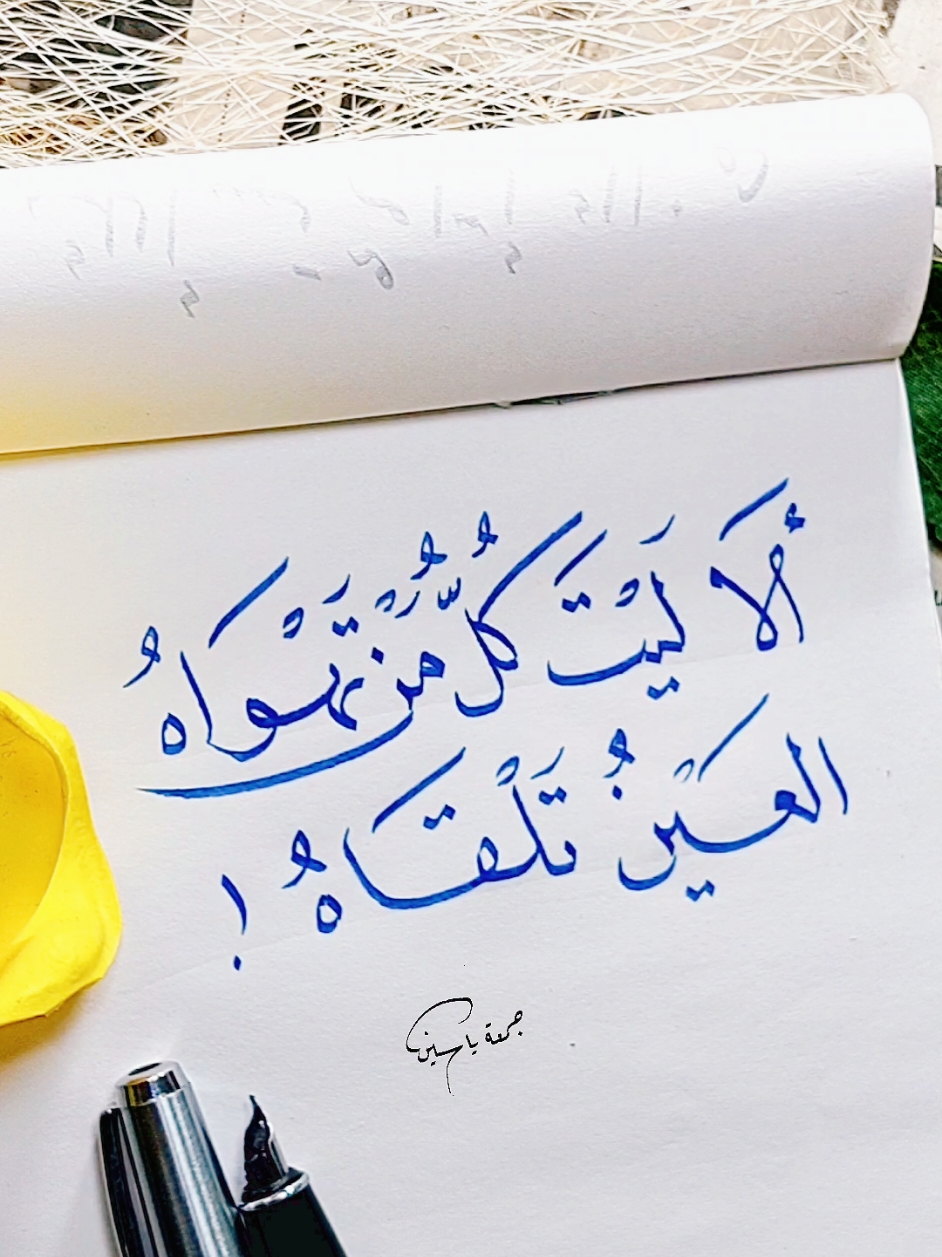 أَلَا لَيْتَ كُلُّ مَّنْ تَهْوَاهُ
العَيْنُ تَلْقَاهُ !
جمعة ياسين